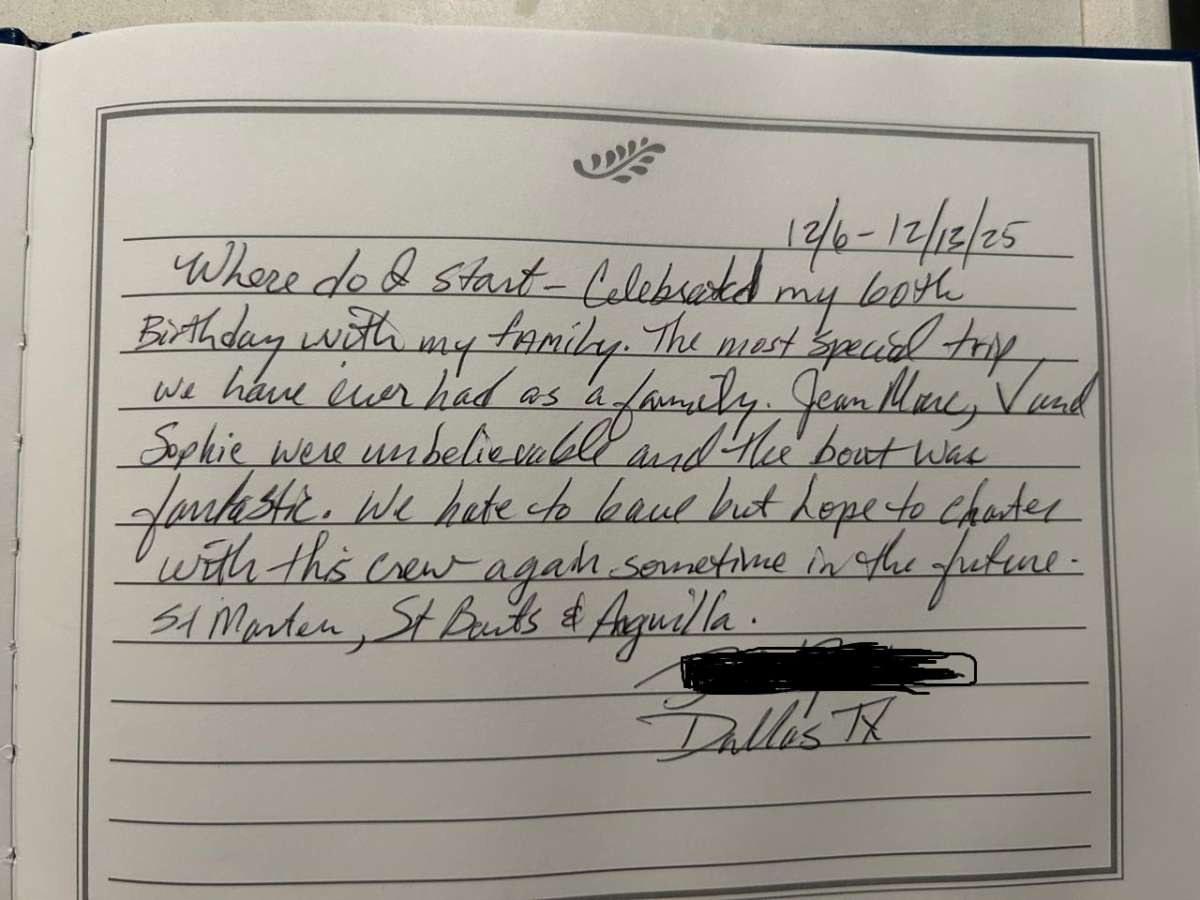 12/6 - 12/13/25
Where do I start - Celebrated my 60th
Birthday with my family. The most special trip
we have ever had as a family. Jean Marc, V and
Sophie were unbelievable and the boat was
fantastic. We hate to leave but hope to charter
with this crew again sometime in the future.
St Marten, St Barts & Anguilla.
Dallas TX